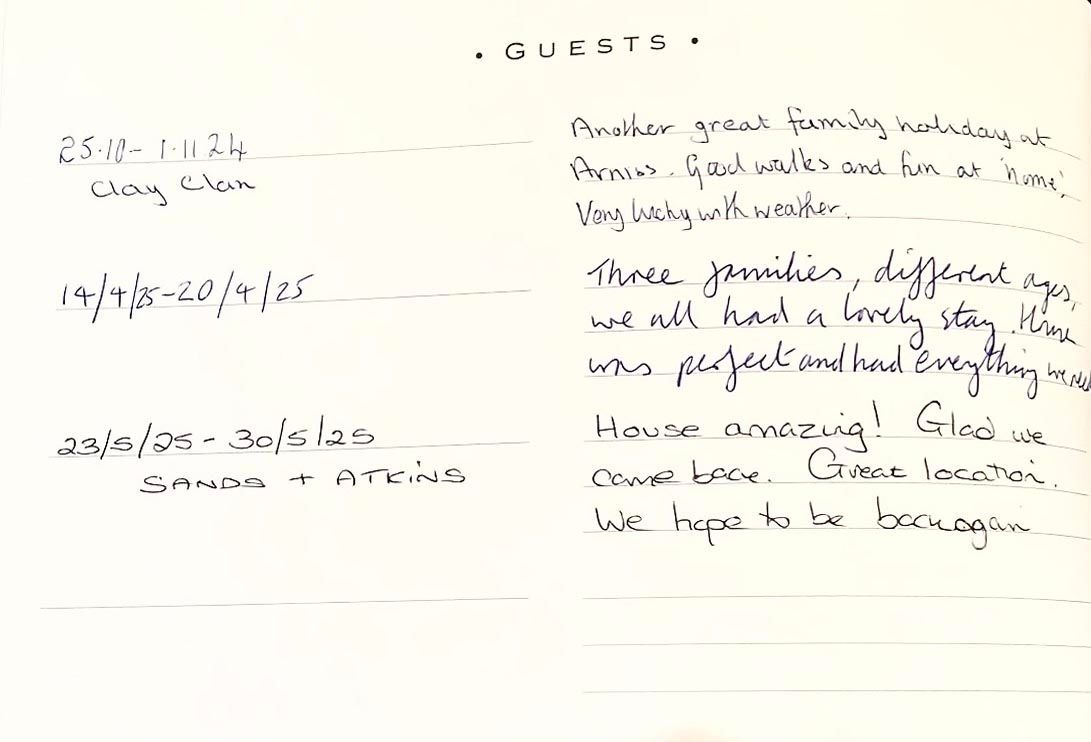 • GUESTS •
25.10 - 1.11 24
Clay Clan
Another great family holiday at
Good walks and fun at 'home',
Very lucky with weather.
14/4/25-20/4/25
Three families, different ages,
we all had a lovely stay. House
was perfect and had everything we
23/5/25 - 30/5/25
SANDS + ATKINS
House amazing! Glad we
came back. Great location.
We hope to be back again